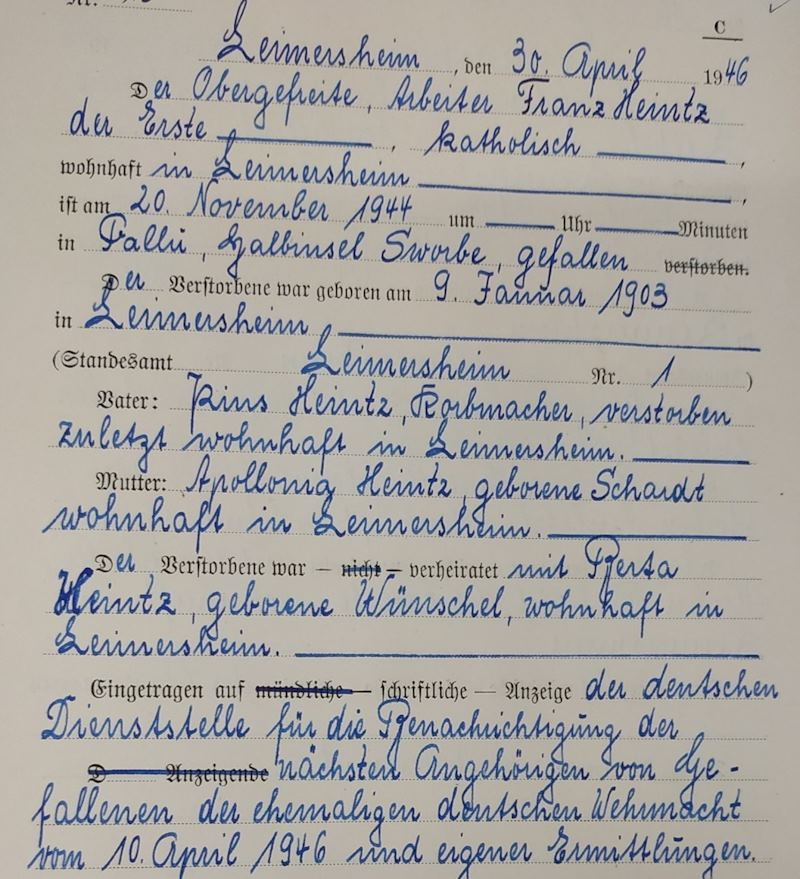 C
Leimersheim, den 30. April 1946
Der Obergefreite, Arbeiter Franz Heintz
der Erste, katholisch,
wohnhaft in Leimersheim,
ist am 20. November 1944 um Uhr Minuten
in Fallü, Halbinsel Sworbe, gefallen verstorben.
Der Verstorbene war geboren am 9. Januar 1903
in Leimersheim
(Standesamt Leimersheim Nr. 1)
Vater: Pius Heintz, Korbmacher, verstorben
zuletzt wohnhaft in Leimersheim.
Mutter: Apollonia Heintz, geborene Schardt
wohnhaft in Leimersheim.
Der Verstorbene war — nicht — verheiratet mit Berta
Heintz, geborene Wünschel, wohnhaft in
Leimersheim.
Eingetragen auf mündliche — schriftliche — Anzeige der deutschen
Dienststelle für die Benachrichtigung der
D Anzeigende nächsten Angehörigen von Ge-
fallenen der ehemaligen deutschen Wehrmacht
vom 10. April 1946 und eigener Ermittlungen.